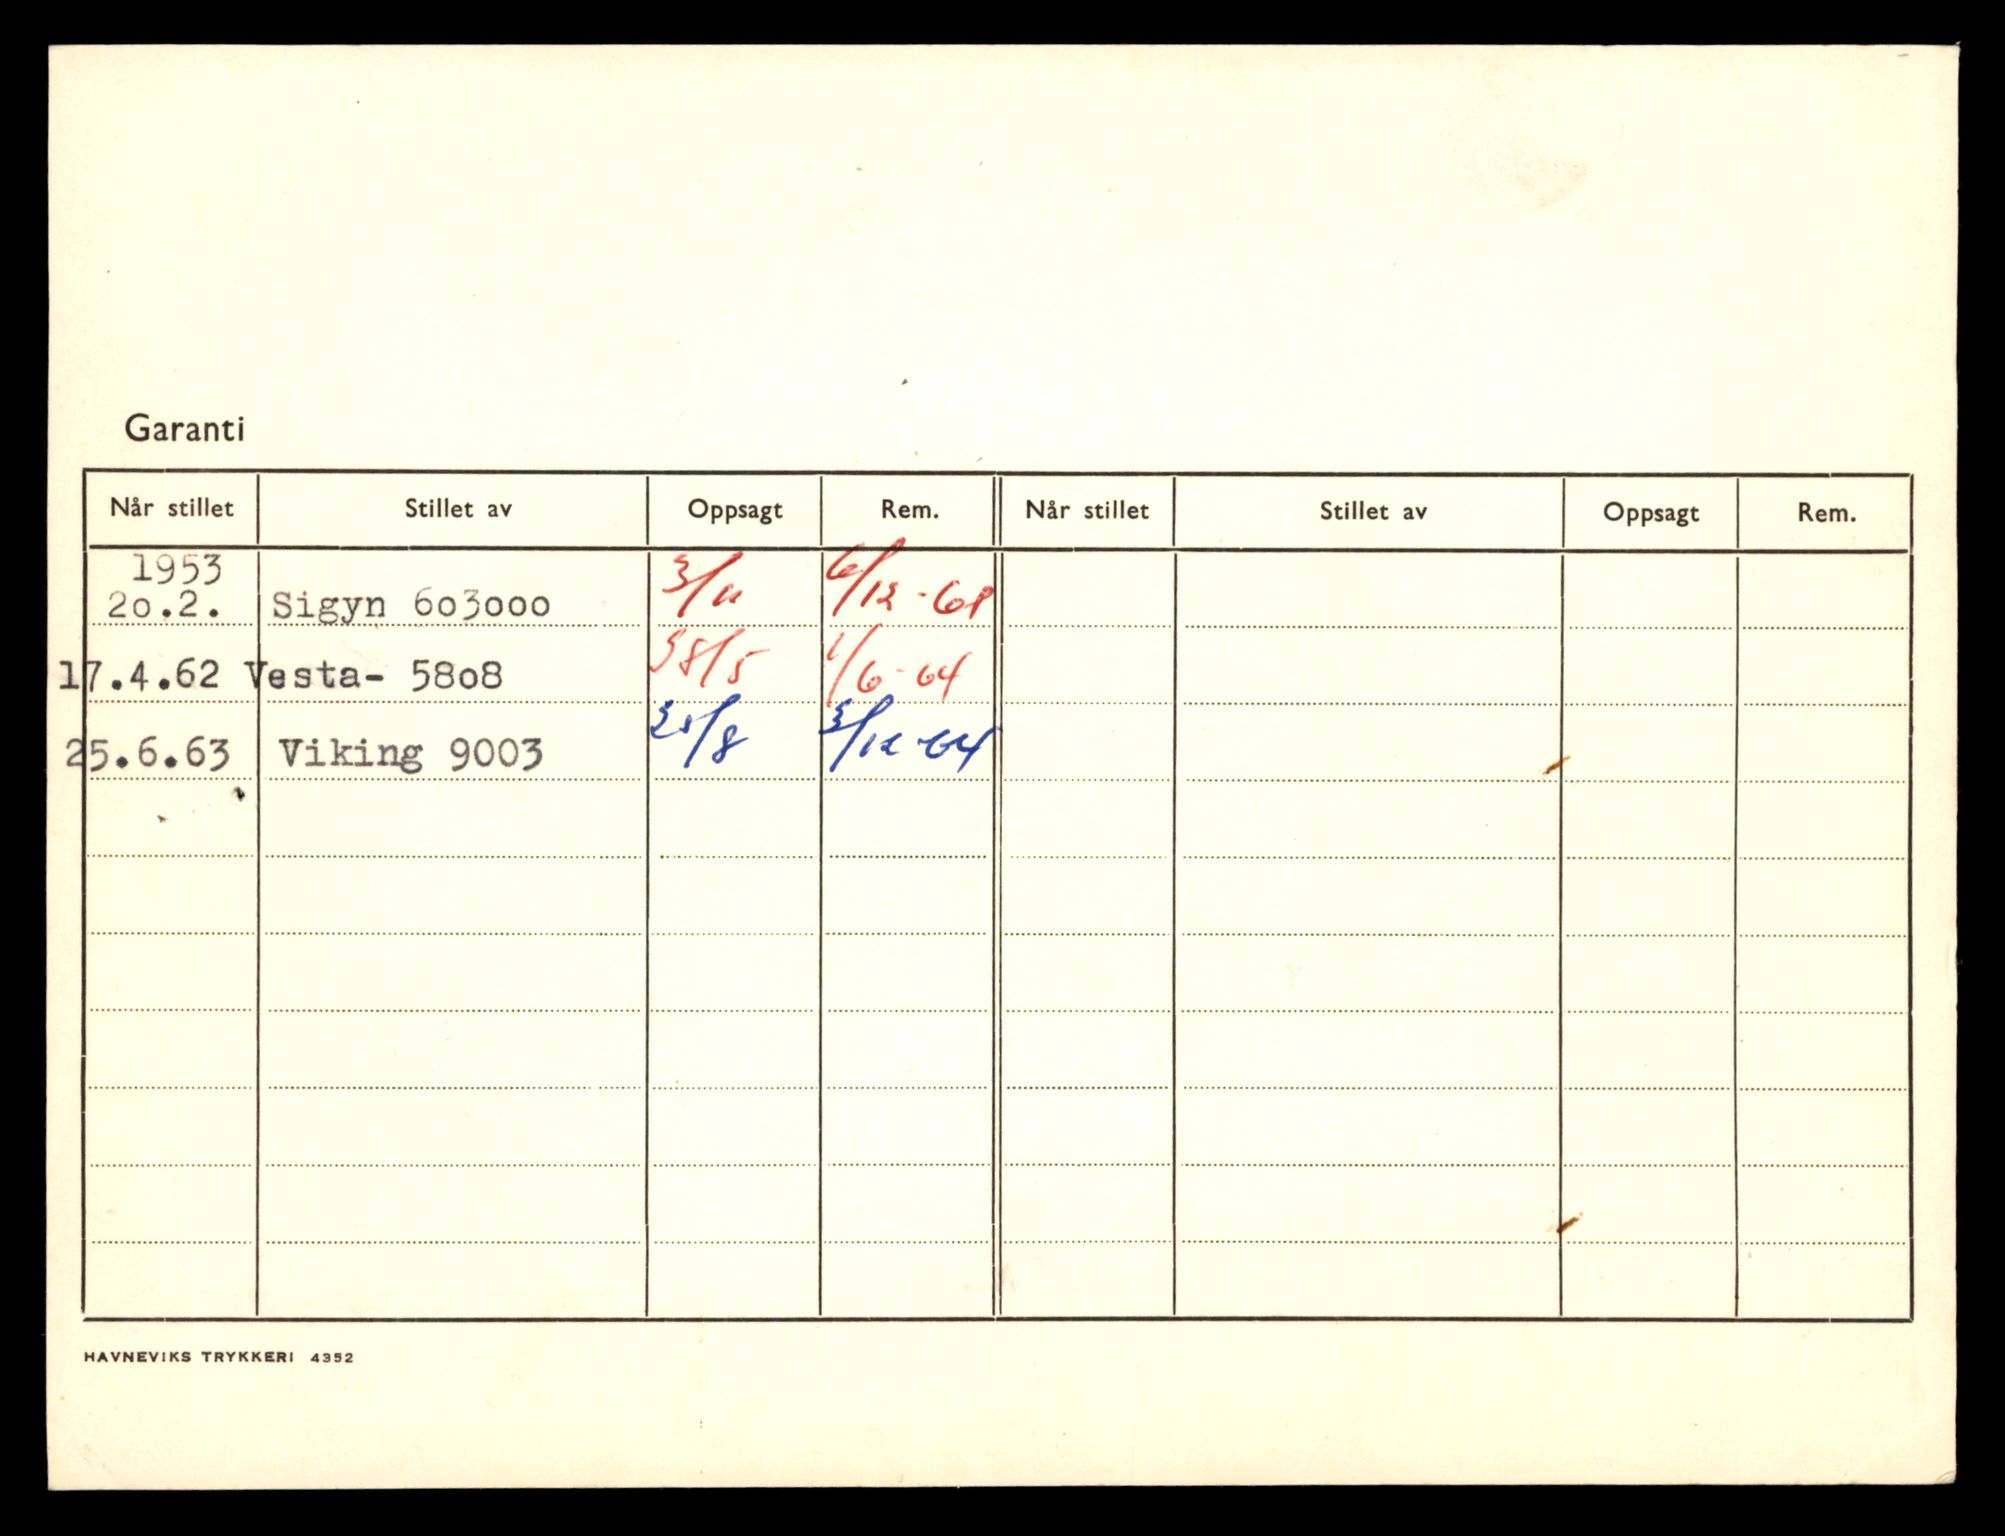 Garanti
Når stillet Stillet av Oppsagt Rem. Når stillet Stillet av Oppsagt Rem.
1953
20.2. Sigyn 603000 3/11 6/12-61
17.4.62 Vesta- 5808 /5 1/6-64
25.6.63 Viking 9003 /8 3/12-64
HAVNEVIKS TRYKKERI 4352